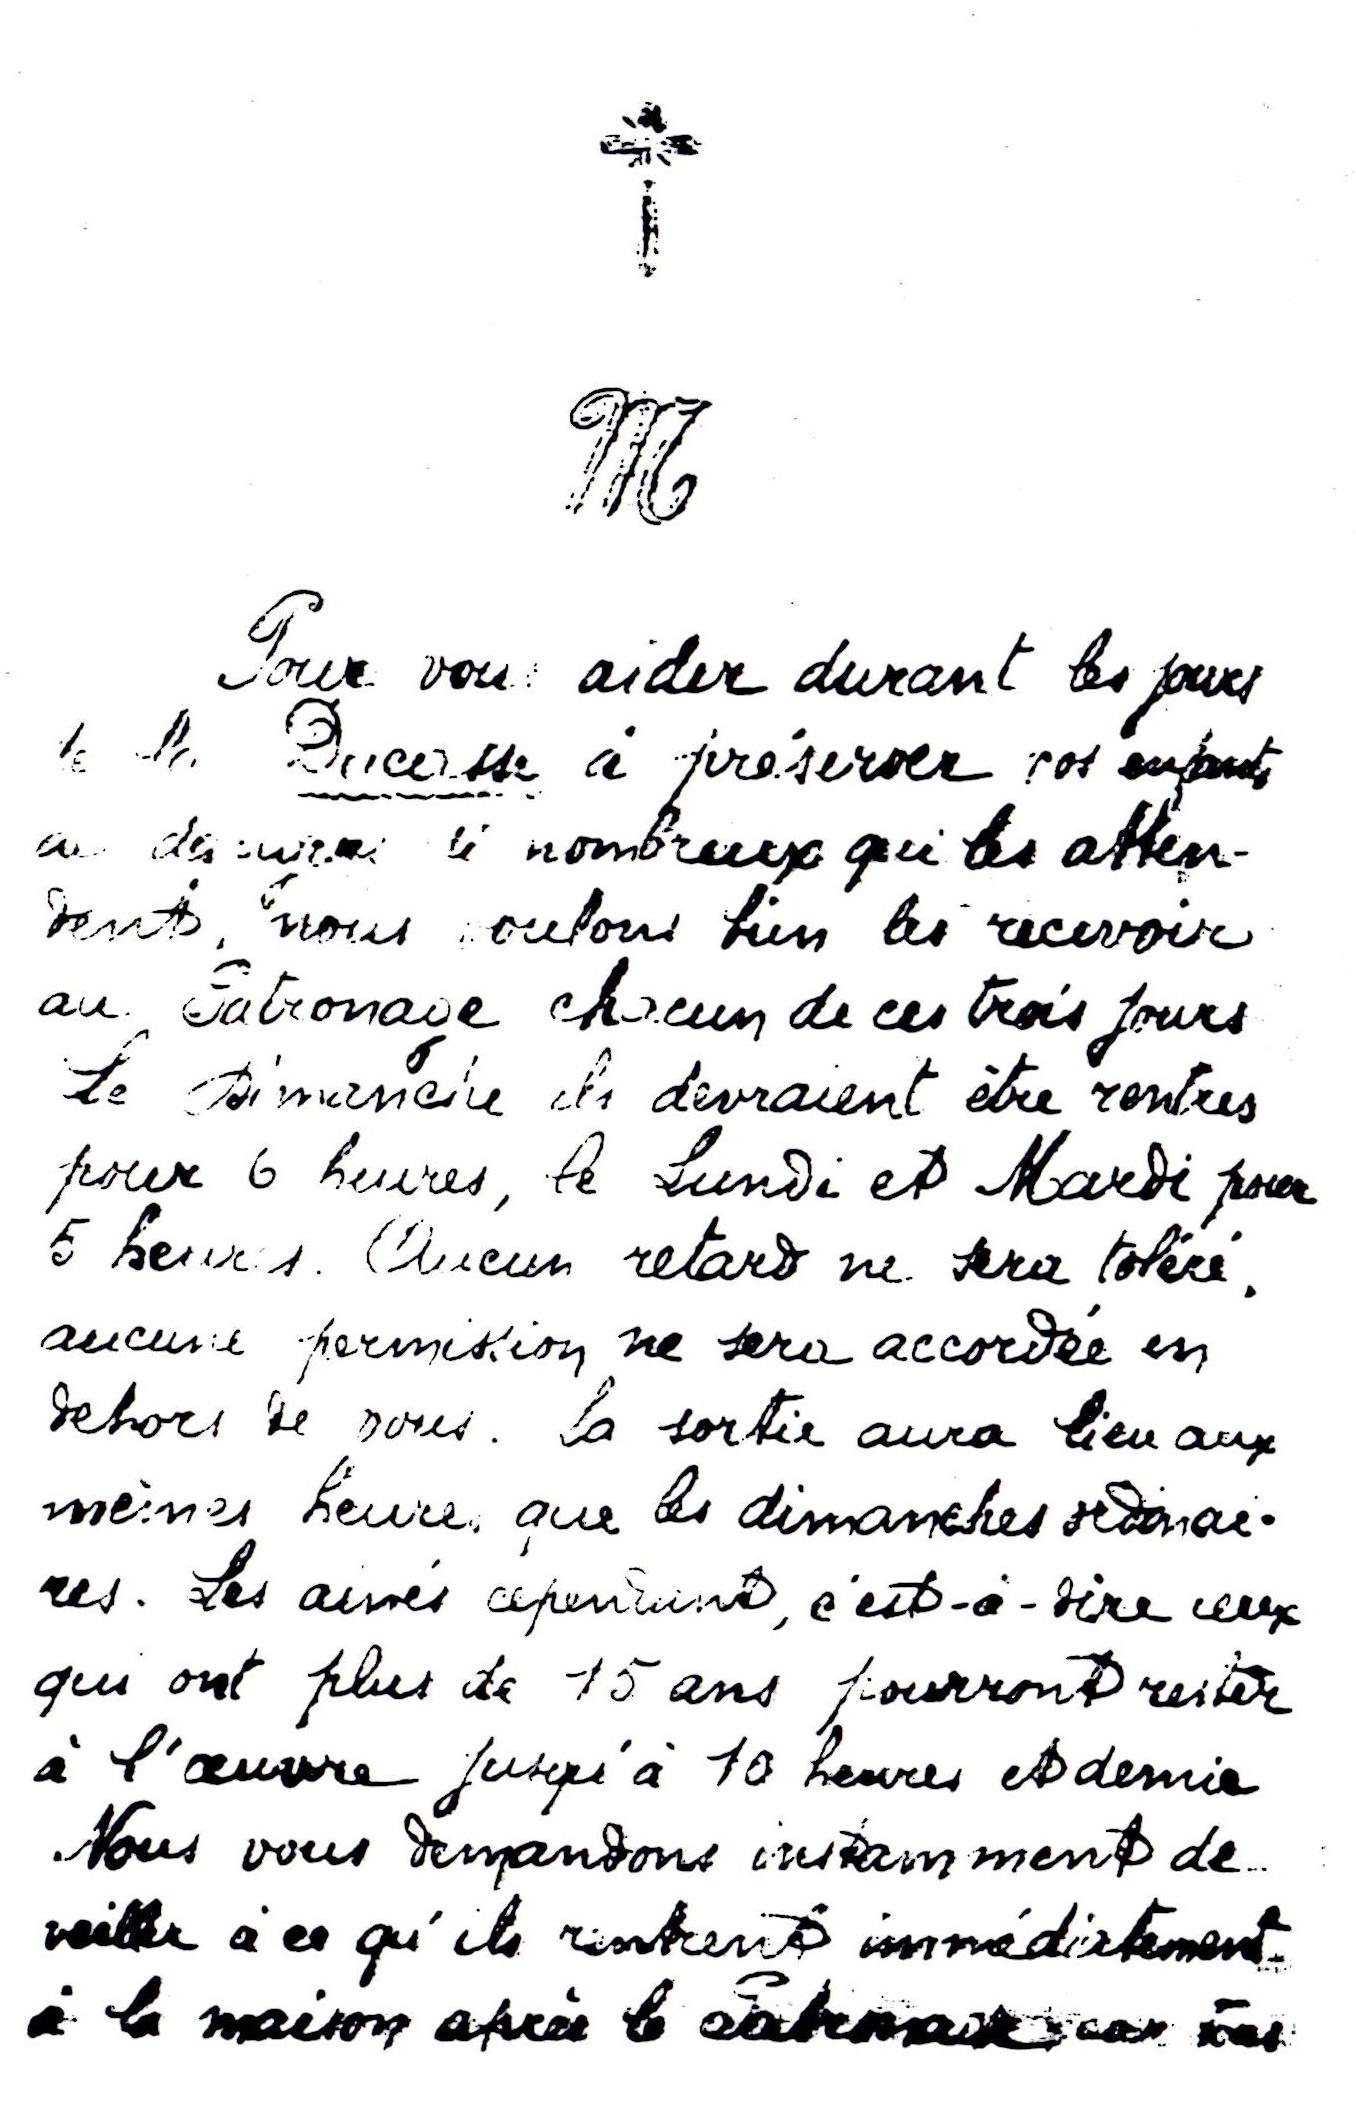 M
Pour vous aider durant les jours
de la Ducasse à préserver vos enfants
si nombreux qui les atten-
dent, nous voulons bien les recevoir
au Patronage chacun de ces trois jours
Le Dimanche ils devraient être rentrés
pour 6 heures, le Lundi et Mardi pour
5 heures. Aucun retard ne sera toléré,
aucune permission ne sera accordée en
dehors de nous. La sortie aura lieu aux
mêmes heures que les dimanches ordinai-
res. Les aînés cependant, c'est-à-dire ceux
qui ont plus de 15 ans pourront rester
à l'œuvre jusqu'à 10 heures et demie
Nous vous demandons instamment de
veiller à ce qu'ils rentrent immédiatement
à la maison après le Patronage, car